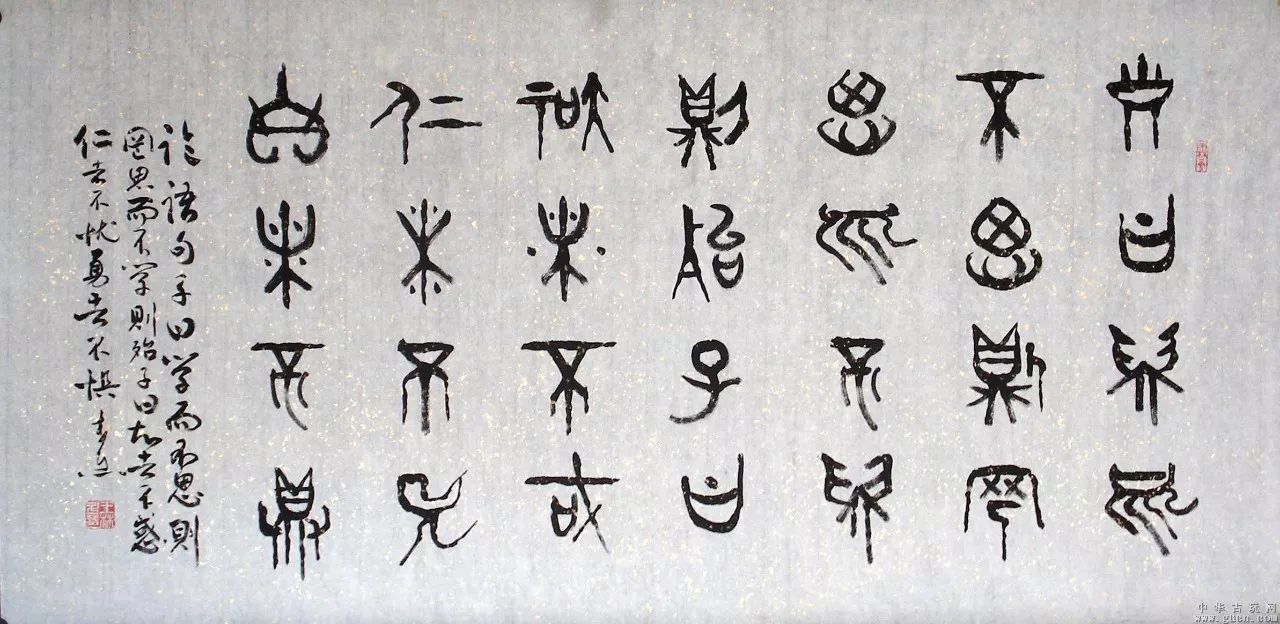 子曰學而
不思則罔
思而不學
則殆子曰
知者不惑
仁者不憂
勇者不懼
論語句子曰学而不思則
罔思而不学則殆子曰知者不惑
仁者不忧勇者不惧
中华古玩网
www.gucn.com